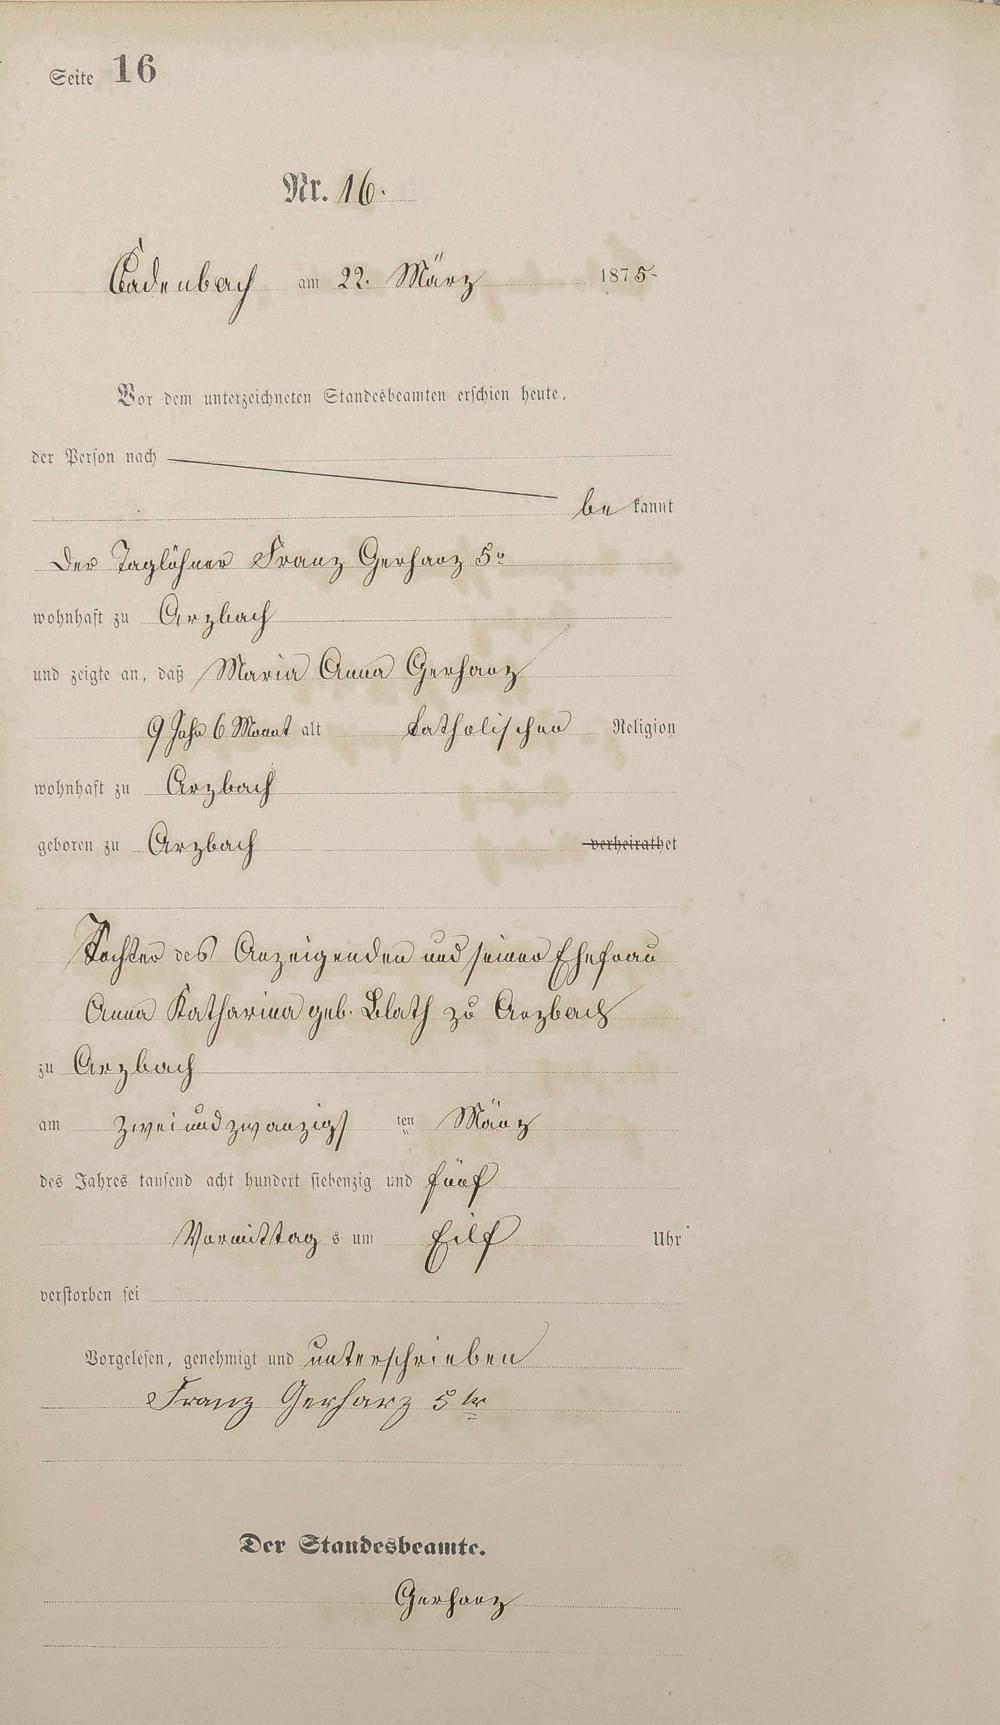 Seite 16
Nr. 16.
Cadenbach am 22. März 1875
Vor dem unterzeichneten Standesbeamten erschien heute,
der Person nach
bekannt
der Taglöhner Franz Gerharz 5r
wohnhaft zu Arzbach
und zeigte an, daß Maria Anna Gerharz
9 Jahr 6 Monat alt katholischer Religion
wohnhaft zu Arzbach
geboren zu Arzbach verheirathet
Tochter des Anzeigenden und seiner Ehefrau
Anna Katharina geb. Blath zu Arzbach
zu Arzbach
am zweiundzwanzigs ten März
des Jahres tausend acht hundert siebenzig und fünf
Vormittags um Eilf Uhr
verstorben sei
Vorgelesen, genehmigt und unterschrieben
Franz Gerharz 5ter
Der Standesbeamte.
Gerharz